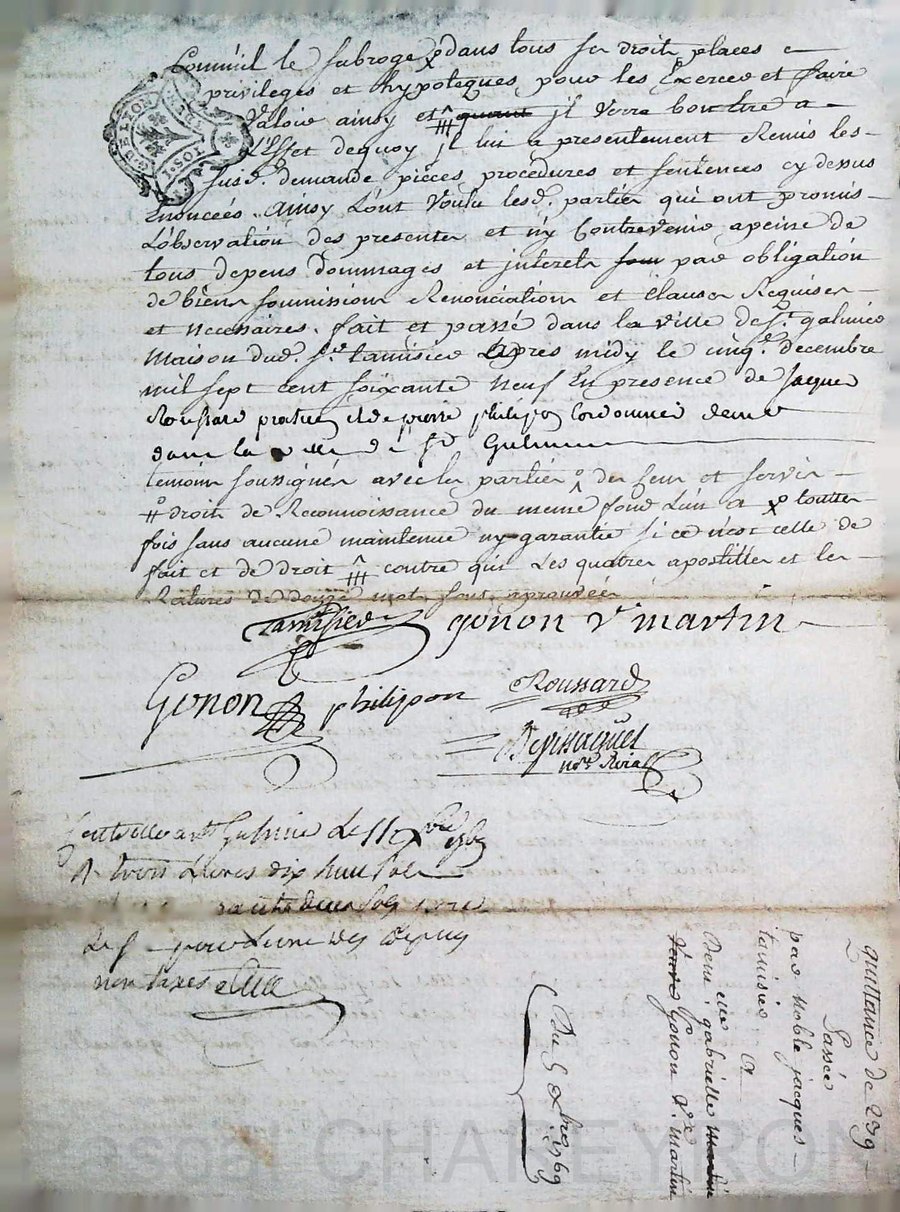 Comme il le subroge dans tous ses droit places e
privileges et hypoteques pour les Exercer et faire
Valoir ainsy et quant jl verra bon Etre a
L'Effet dequoy jl lui a presentement Remis les
susd. demande piéces procedures et sentences cy dessus
Enoncéés. ainsy L'ont Voulu lesd. parties qui ont promis
L'observation des presentes et n'y Contrevenir apeine de
tous depens dommages et jnterets par obligation
de biens soumissions Renonciations et Clauses Requises
et necessaires. fait et passé dans la ville de St. galmier
Maison dud. Sr. tamisier apres midy le cinq. decembre
mil sept cent soixante neuf En presence de Jacques
Roussard praticien et de pierre philipon Cordonnier demt
dans la ville de St Galmier
temoins soussignés avec les parties des Cens et servis
droit de Reconnoissance du meme fond L'un a toutte
fois sans aucune maintenue ny garantie si ce n'est celle de
fait et de droit contre qui Les quatre apostilles et les
Ratures de douze mots sont aprouvées
Tamisier gonon Ve martin
Gonon philipon Roussard
nore Roial
Galmier Le 11 xbre 1769
R trois Livres dix huit sols
non taxés
quittance de 239
Passée
par noble jacques
tamisier A
Demlle gabrielle martin
Gonon Ve martin
Du 5 Xbre 1769
Pascal CHAREYRON